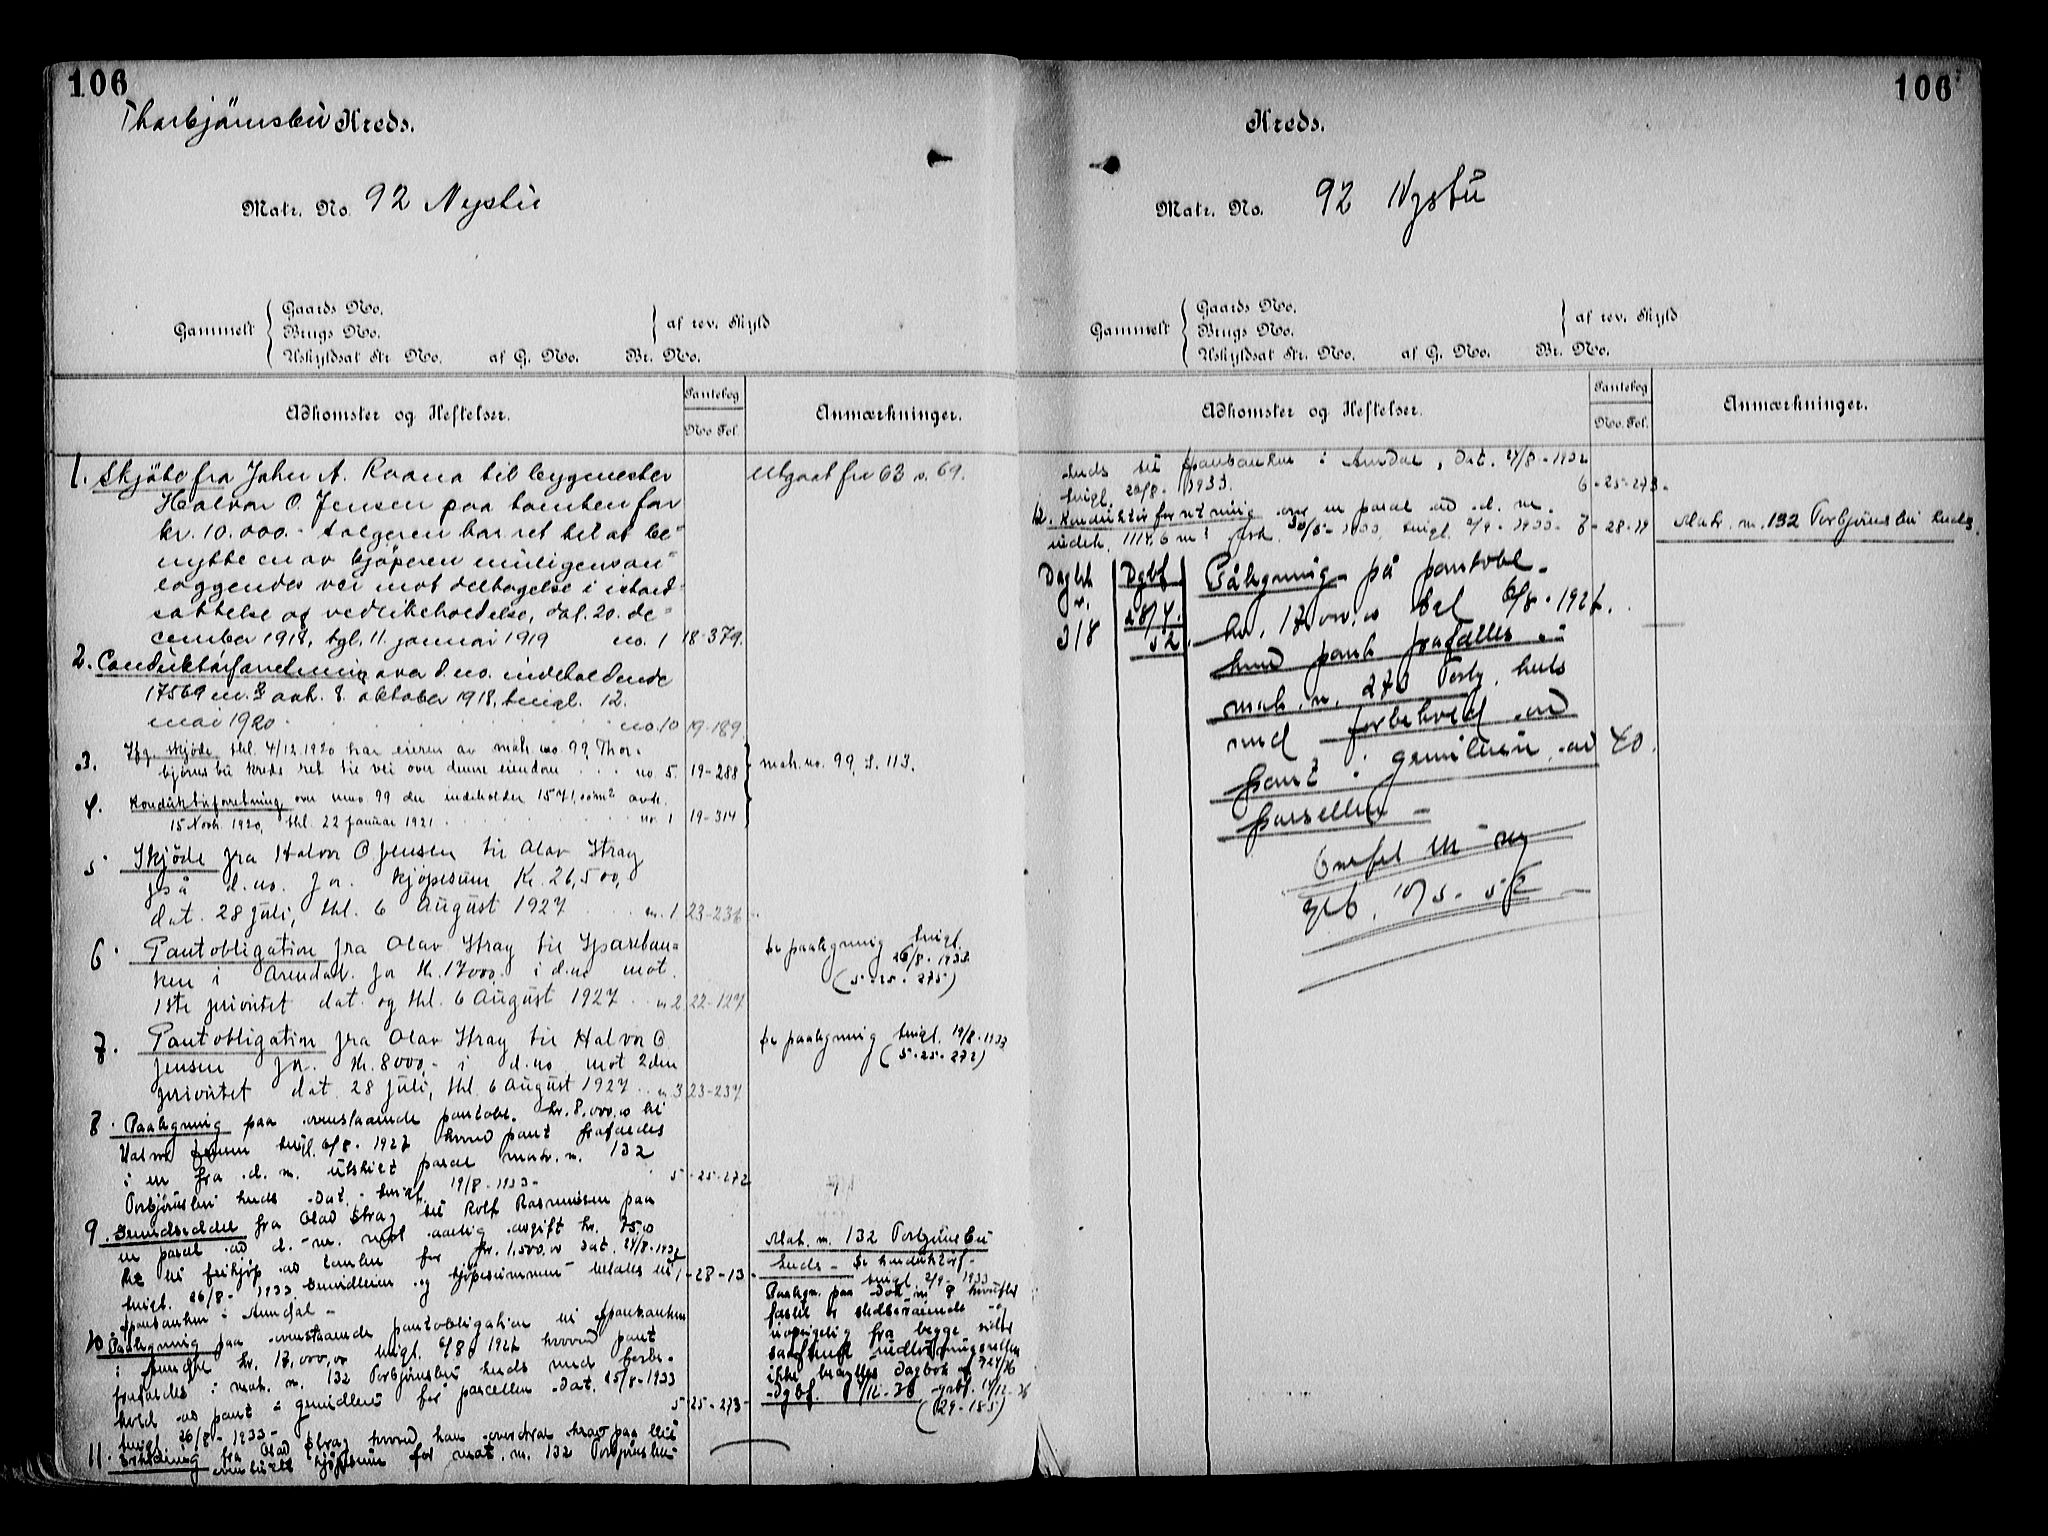 106
Thorbjørnsbu Kreds.
Matr. No. 92 Nysbu
Gammelt
Gaards No.
Brugs No.
Uskyldsat Str. No. af G. No. Br. No.
af rev. Skyld
Adkomster og Heftelser.
Pantebog
No Fol.
Anmærkninger.
1. Skjøte fra John A. Raana til bygmester
Halvor O. Jensen paa tomten for
kr. 10.000.- Sælgeren har ret til at be-
nytte en av kjøperen muligens an-
læggendes vei mot deltagelse i istand-
sættelse og vedlikeholdelse, dat. 20. de-
cember 1918, tgl. 11. januar 1919 no. 1 18-379.
Utgaat fra 63 s. 69.
2. Conduktørforretning over d. no. indeholdende
17569 m.² avh. 8. oktober 1918, tingl. 12.
mai 1920 no. 10 19-189
3. Ifg. skjøde, thl. 4/12 1920 har eieren av matr. no. 99, Thor-
bjørnsbu kreds ret til vei over denne eiendom no. 5. 19-288
matr. no. 99, s. 113.
4. Konduktørforretning over mno. 99 der indeholder 1571,00 m² avh.
15 Novbr. 1920, thl. 22 januar 1921 no. 1 19-314
5 Skjøde fra Halvor O Jensen til Olav Stray
på d. no. for kjøpesum Kr. 26,500,
dat. 28 juli, thl. 6 August 1927 n. 1 23-236
6. Pantobligation fra Olav Stray til Spareban-
ken i Arendal for Kr. 17000. i d. no mot
1ste prioritet dat. og thl. 6 August 1927 n. 2 22-127
Se paategning tingl.
26/8 - 1933
(5-25-275)
7. Pantobligation fra Olav Stray til Halvor O.
Jensen for Kr. 8000,- i d. no mot 2den
prioritet dat. 28 juli, thl. 6 August 1927 n. 3 23-237
Se paategning tingl. 19/8-1933
(5-25-272)
8. Paategning paa ovenstaaende pantobl. kr. 8,000.00 til
Halvor Jensen tingl. 6/8 - 1927 hvorved pant frafaldes
i en fra d. n. utskilt parcel matr. n. 132
Torbjørnsbu kreds. Dat. - tingl. 19/8-1933- 5-25-272
9. Grundseddel fra Olav Stray til Rolf Rasmussen paa
en parcel av d. m. mot aarlig avgift kr. 75.00
Ret til frikjøp av tomten for kr. 1,500.00 Dat. 24/8-1932
tingl. 26/8- 1933. Grundleien og kjøpesummen betales til 1-28-13-
Sparebanken i Arendal -
Matr. n. 132 Torbjørnsbu
kreds - Se konduktørf-
tingl. 2/9-1933
Paategn. paa Dok n. 9 hvorefter
festet er stedsevarende og
uopsigelig fra begge sider
saafremt indløsningsretten
ikke benyttes dagbok n. 724/36
Dgbf. 1/12-36 grbf. 14/12-36
(29-185)
10 Paategning paa ovenstaaende pantobligation til Sparebanken
i Arendal kr. 17,000,00 tingl. 6/8 1927 hvorved pant
frafaldes i matr. n. 132 Torbjørnsbu kreds med forbe-
hold av pant i grundleie for parcellen Dat. 25/8-1933
tingl. 26/8-1933- 5-25-273-
11. Erklæring fra Olav Stray hvorved han overdrar krav paa leie
eventuelt kjøpesum for mat. n. 132 Torbjørnsbu
106
Kreds.
Matr. No. 92 Nysbu
Gammelt
Gaards No.
Brugs No.
Uskyldsat Str. No. af G. No. Br. No.
af rev. Skyld
Adkomster og Heftelser.
Pantebog
No. Fol.
Anmærkninger.
kreds til Sparebanken i Arendal, Dat. 24/8-1932
tingl. 26/8- 1933. 6-25-273-
12. Konduktørforretning over en parcel av d. m.
indeh. 1114,6 m² Avh. 30/5-1933, tingl. 2/9-1933- 7-28-19
Matr. n. 132 Torbjørnsbu kreds.
Dagbk
n.
318
Dgbf
28/4.
52.
Påtegning på pantobl.
kr. 17000,00 tgl 6/8-1927.
hvor pant frafalles i
matr. n. 273 Torbj. kreds
med forbehold av
pant i grundleien av 40.
parsellen -